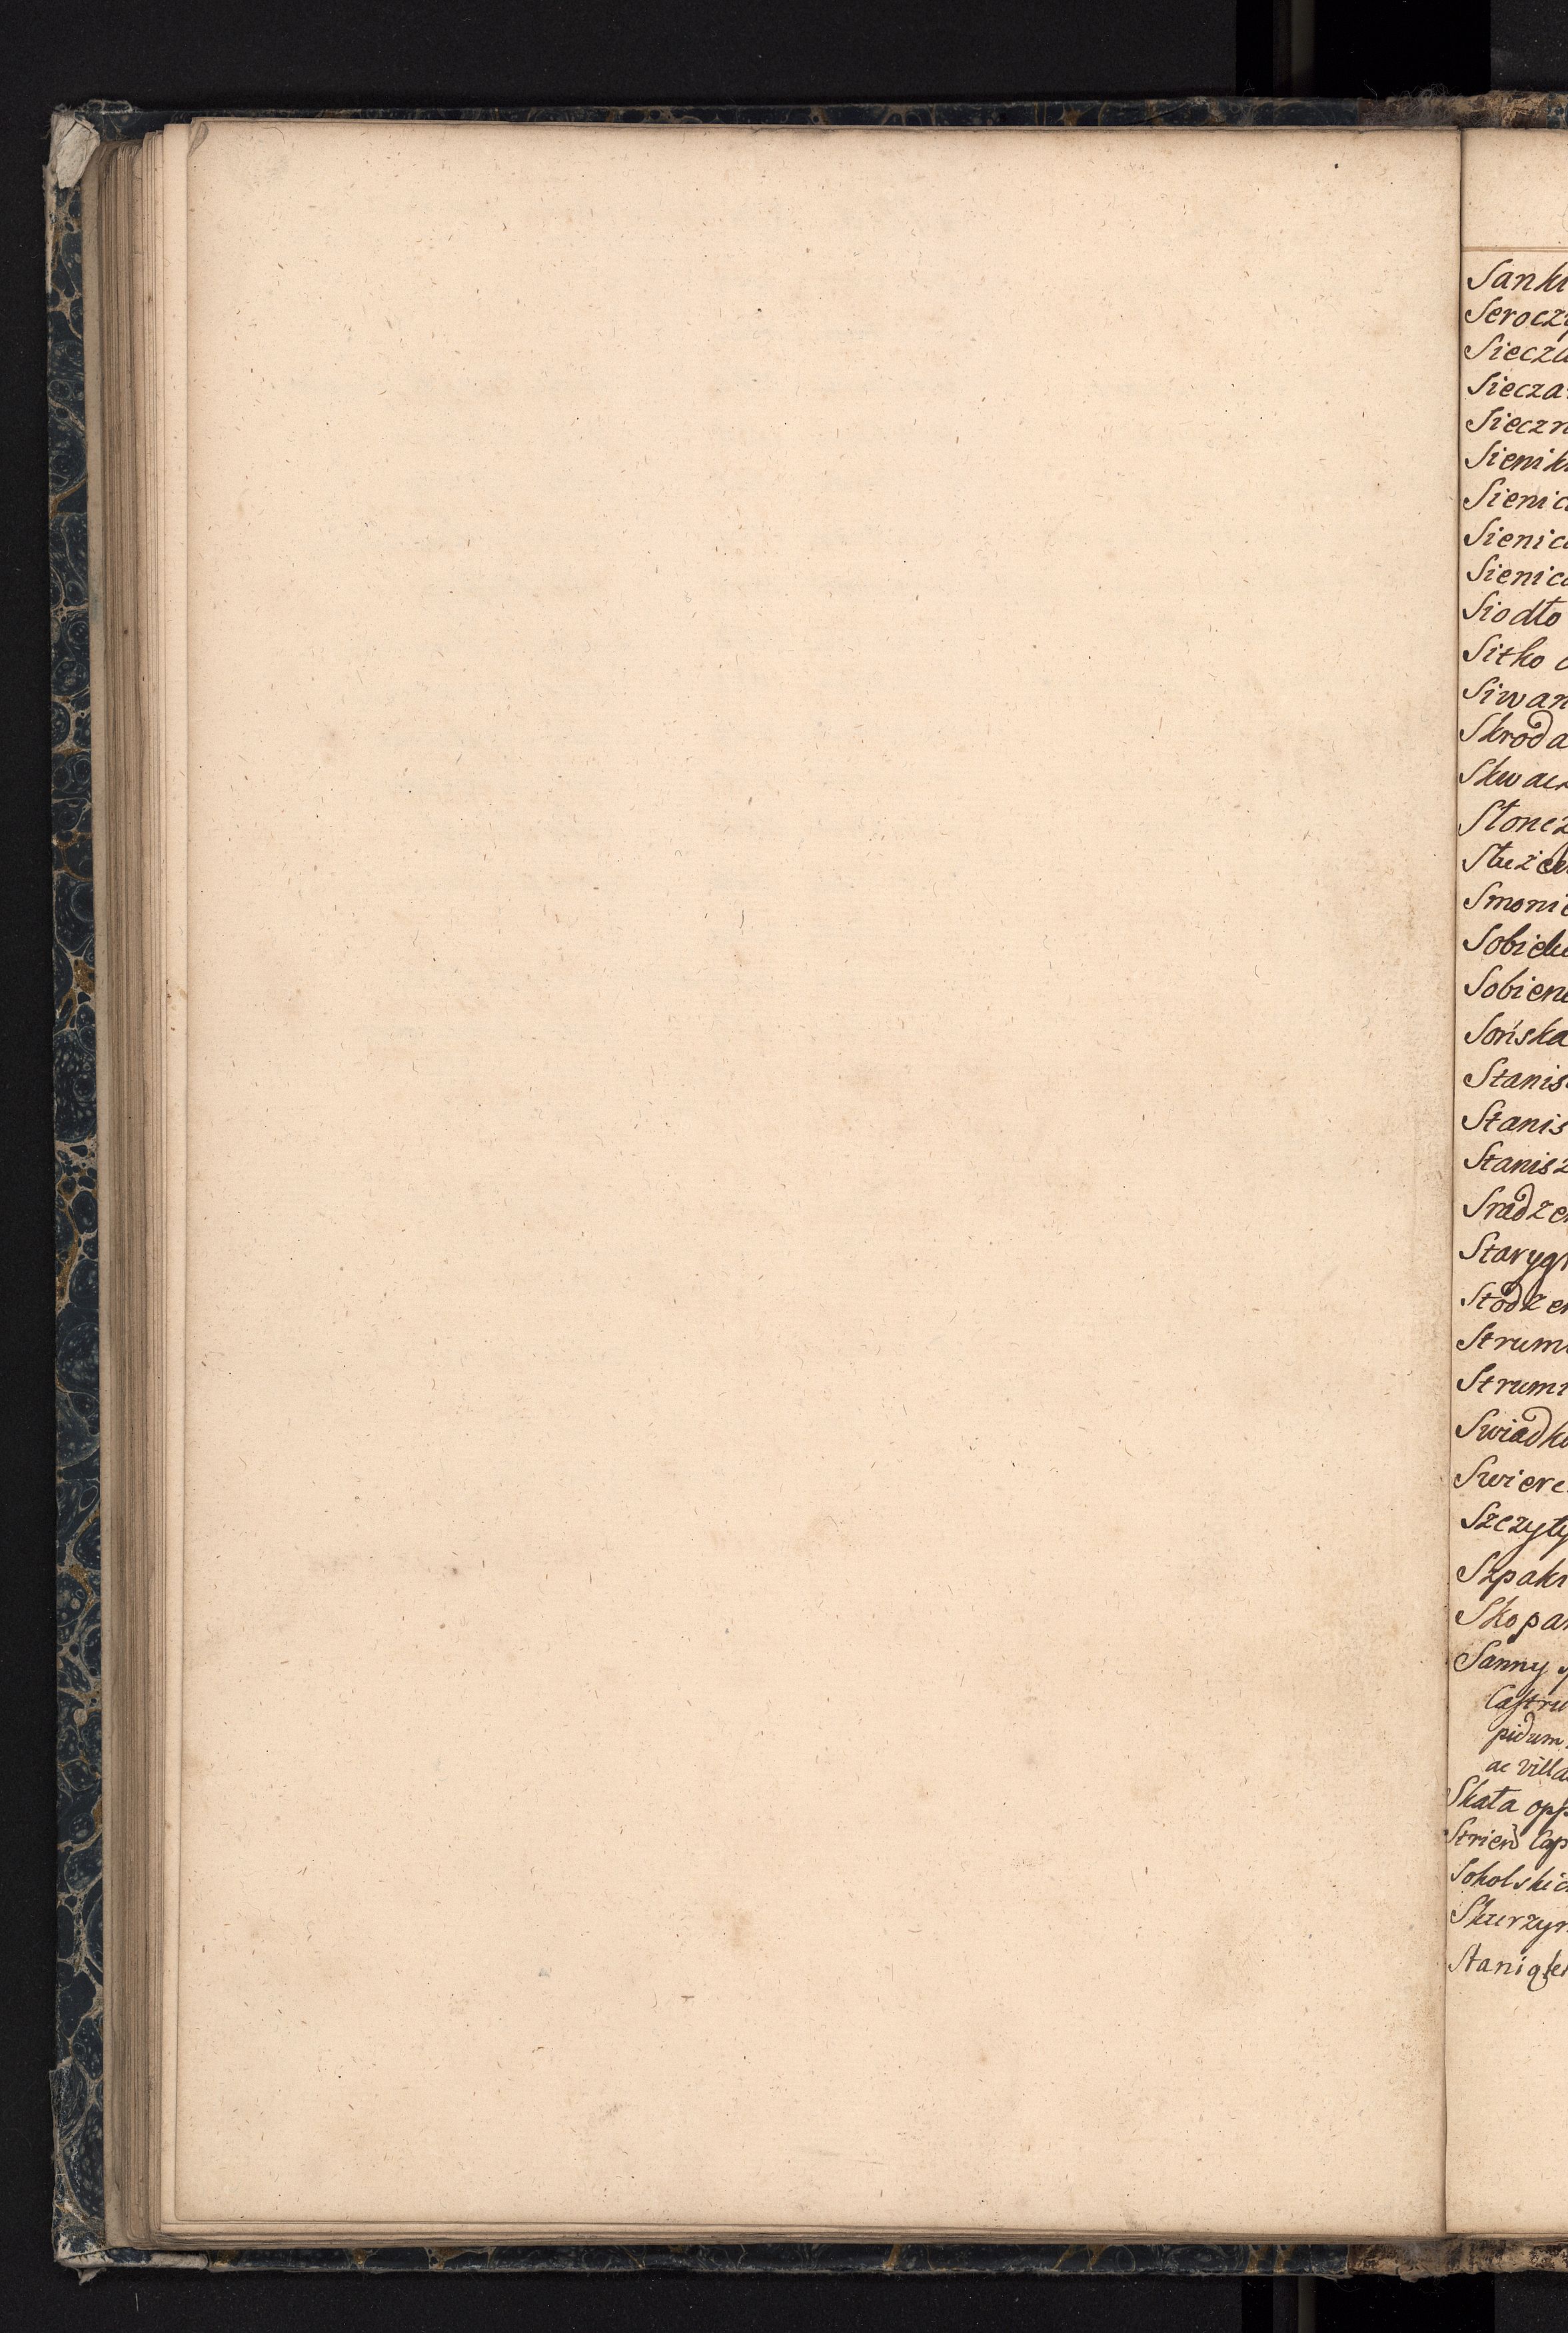 Sanki
Seroczy
Siecza
Sieczа
Sieczn
Sienik
Sienic
Sienic
Sienic
Siodło
Sitko
Siwan
Skroda
Skwacz
Słoncz
Służew
Smonie
Sobieku
Sobiene
Sońska
Stanis
Stanis
Stanisz
Starygr
Stodzen
Strumi
Strumi
Swiadko
Swierc
Szczyty
Szpaki
Skopan
Sanny
Castru
pidum
ac villa
Skała opp
Strień Cap
Sokolskic
Skurzyn
Staniąte